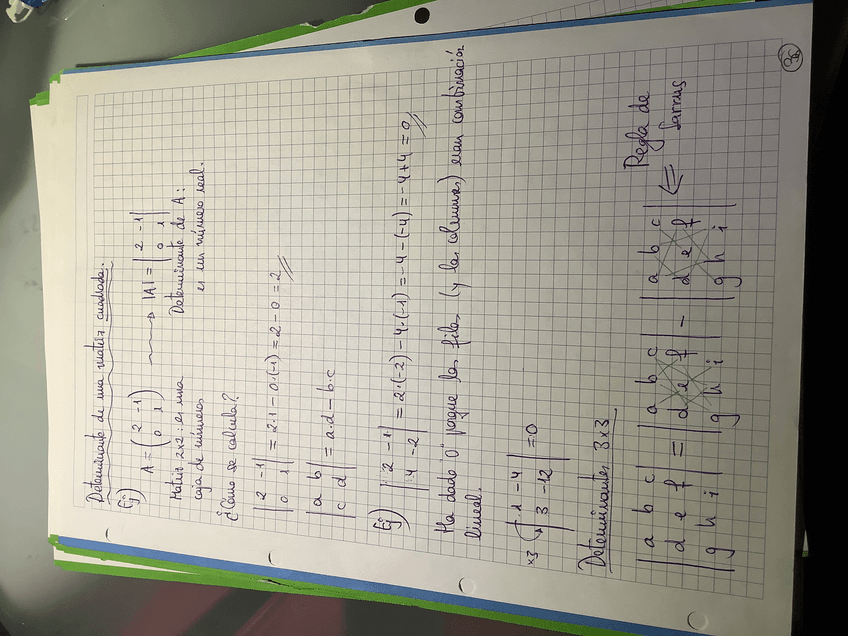 Determinante de una matriz cuadrada.
Ej) A = ( 2 -1 / 0 1 ) → |A| = | 2 -1 / 0 1 |
Matriz 2x2: es una caja de números
Determinante de A: es un número real.
¿Cómo se calcula?
| 2 -1 / 0 1 | = 2·1 - 0·(-1) = 2 - 0 = 2
| a b / c d | = a·d - b·c
Ej) | 2 -1 / 4 -2 | = 2·(-2) - 4·(-1) = -4 - (-4) = -4 + 4 = 0
Ha dado "0" porque las filas (y las columnas) eran combinación
lineal.
x3 | 1 -4 / 3 -12 | = 0
Determinantes 3x3
| a b c / d e f / g h i | = | a b c / d e f / g h i | - | a b c / d e f / g h i | ⇐ Regla de Sarrus
36